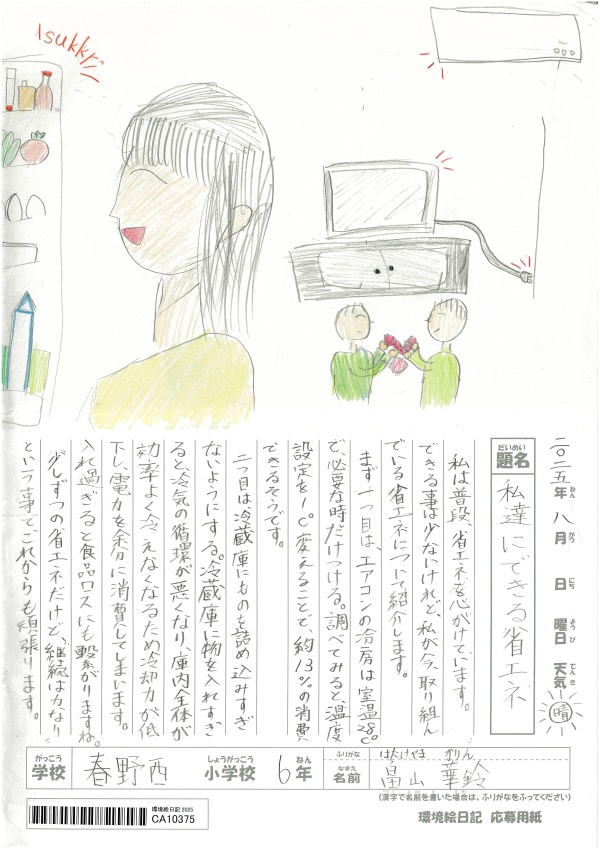 \sukkr//
二〇二五年ねん 八月がつ 日にち 曜日ようび 天気てんき 晴
題名だいめい 私達にできる省エネ
私は普段、省エネを心がけています。
できる事は少ないけれど、私が今、取り組ん
でいる省エネについて紹介します。
まず一つ目は、エアコンの冷房は室温28℃
で、必要な時だけつける。調べてみると、温度
設定を1℃変えることで、約13%の消費
できるそうです。
二つ目は冷蔵庫にものを詰め込みすぎ
ないようにする。冷蔵庫に物を入れすぎ
ると冷気の循環が悪くなり、庫内全体が
効率よく冷えなくなるため冷却力が低
下し、電力を余分に消費してしまいます。
入れ過ぎると食品ロスにも繋がりますね。
少しずつの省エネだけど、継続は力なり
という事で、これからも頑張ります。
がっこう しょうがっこう ねん ふりがな はたけやま かりん
学校 春野西 小学校 6年 名前なまえ 畠山 華鈴
(漢字で名前を書いた場合は、ふりがなをふってください)
環境絵日記 2025
CA10375
環境絵日記 応募用紙